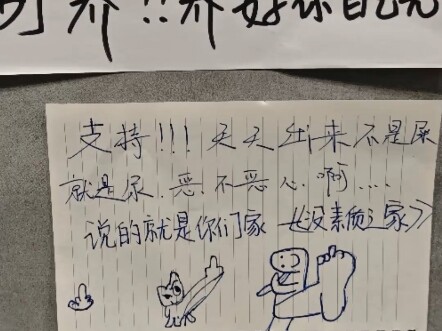 养!!养好你自己
支持!!!天天出来不是屎
就是尿.恶不恶心啊....
说的就是你们家《没素质之家》